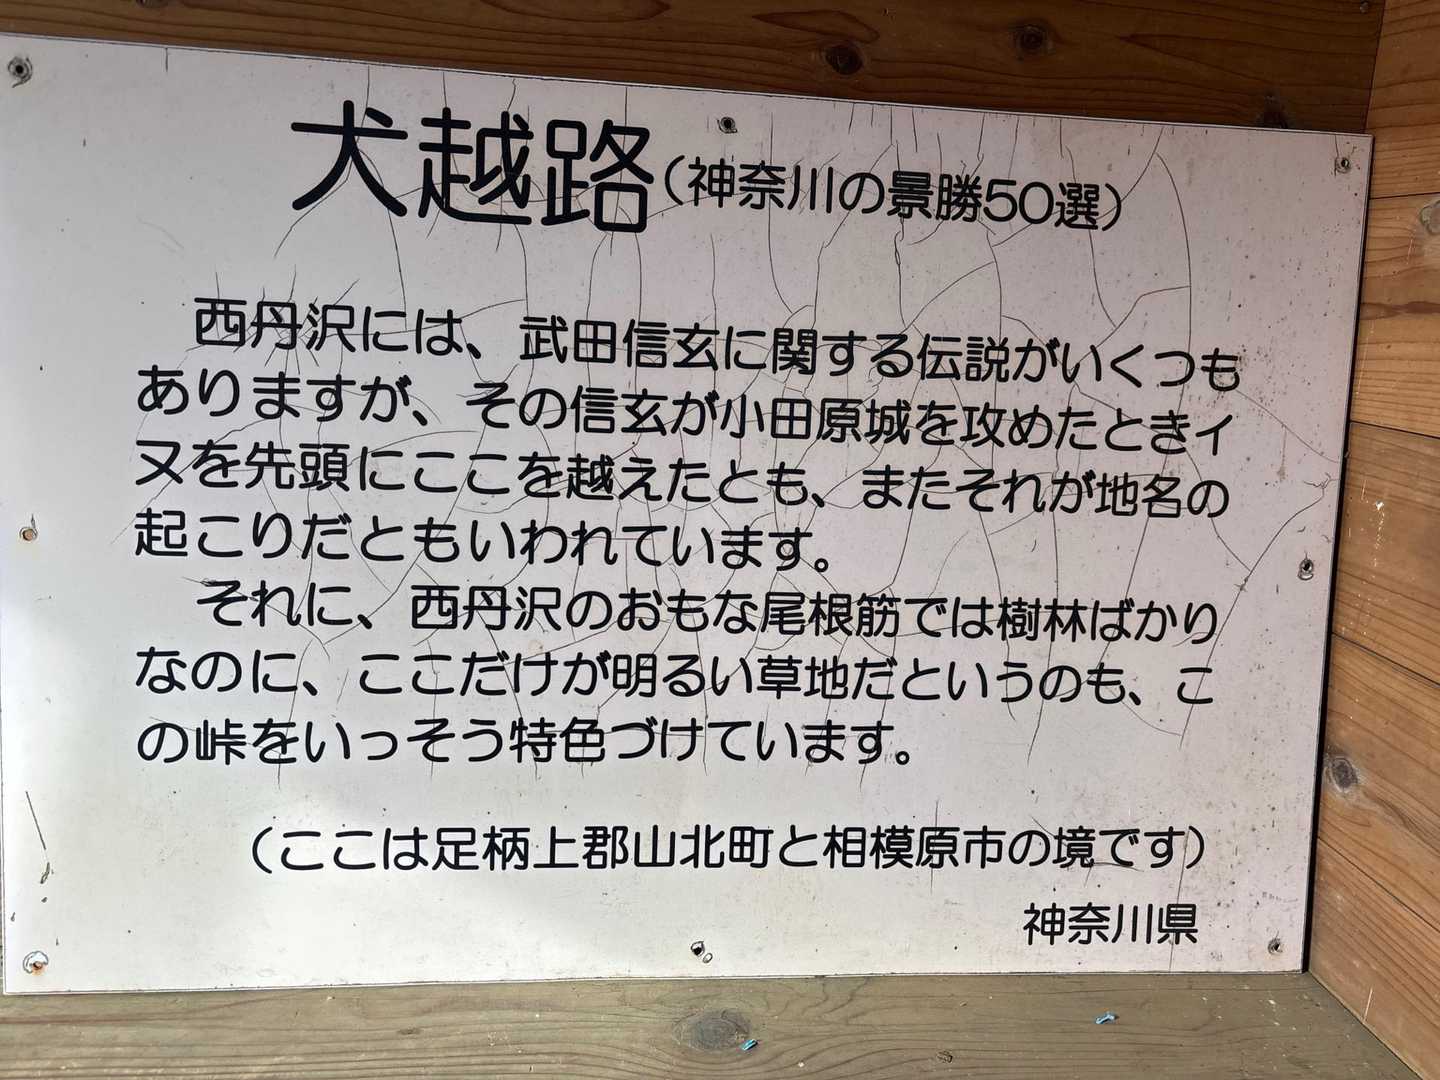 犬越路(神奈川の景勝50選)
西丹沢には、武田信玄に関する伝説がいくつも
ありますが、その信玄が小田原城を攻めたときイ
ヌを先頭にここを越えたとも、またそれが地名の
起こりだともいわれています。
それに、西丹沢のおもな尾根筋では樹林ばかり
なのに、ここだけが明るい草地だというのも、こ
の峠をいっそう特色づけています。
(ここは足柄上郡山北町と相模原市の境です)
神奈川県